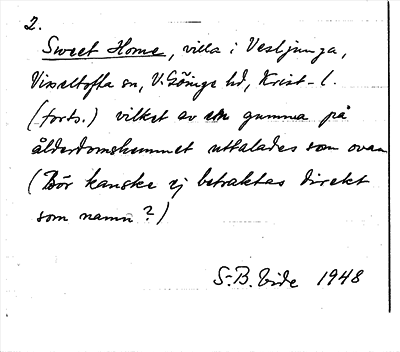 2.
Sweet Home, villa i Vesljunga,
Visseltofta sn, V. Göinge hd, Krist-l.
(forts.) vilket av en gumma på
ålderdomshemmet uttalades som ovan
(Bör kanske ej betraktas direkt
som namn?)
S-B. Vide 1948